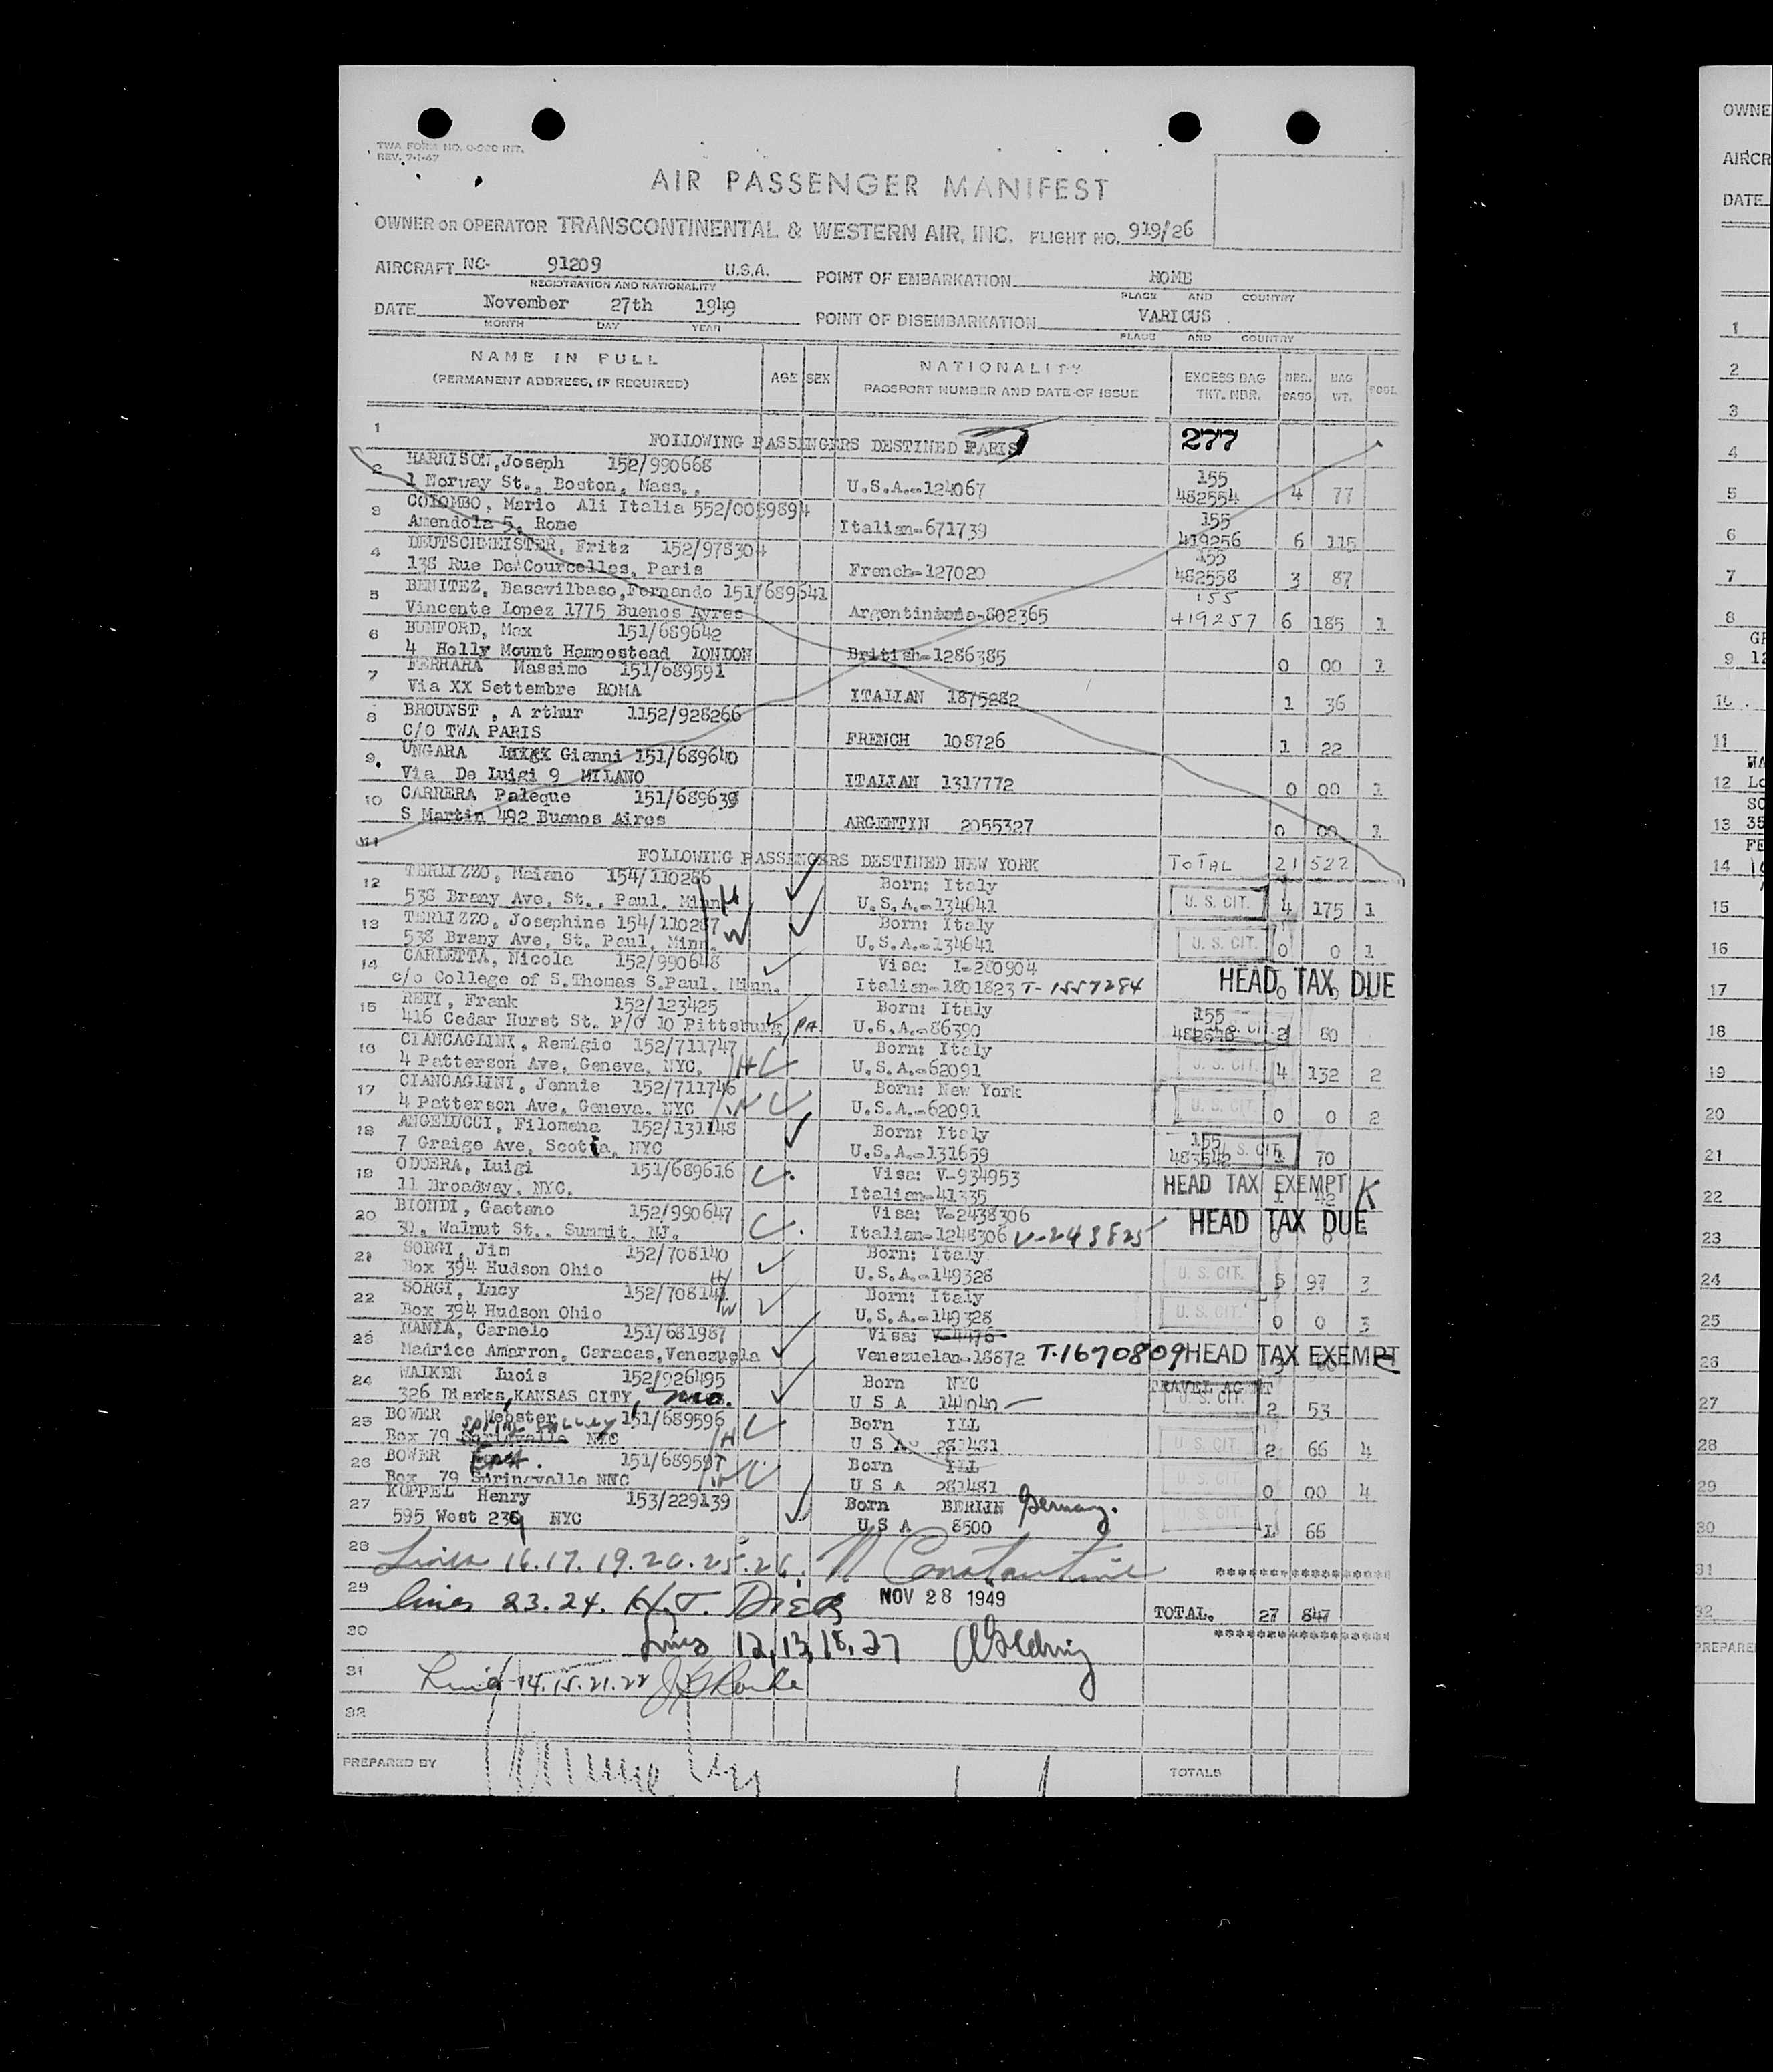 TWA FORM NO. O-920 INT.
REV. 7-1-47
AIR PASSENGER MANIFEST
OWNER OR OPERATOR TRANSCONTINENTAL & WESTERN AIR, INC. FLIGHT NO. 919/26
AIRCRAFT NC- 91209 U.S.A. POINT OF EMBARKATION ROME
REGISTRATION AND NATIONALITY PLACE AND COUNTRY
DATE November 27th 1949 POINT OF DISEMBARKATION VARIOUS
MONTH DAY YEAR PLACE AND COUNTRY
NAME IN FULL AGE SEX NATIONALITY EXCESS BAG NBR. BAG POOL
(PERMANENT ADDRESS, IF REQUIRED) PASSPORT NUMBER AND DATE OF ISSUE TKT. NBR. BAGS WT.
1 FOLLOWING PASSENGERS DESTINED PARIS 277
2 HARRISON, Joseph 152/990668 155
1 Norway St., Boston, Mass., U.S.A.-124067 482554 4 77
3 COLOMBO, Mario Ali Italia 552/0059894 155
Amendola 5, Rome Italian-671739 419256 6 115
4 DEUTSCHMEISTER, Fritz 152/978304 155
138 Rue De Courcelles, Paris French-127020 482558 3 87
5 BENITEZ, Basavilbaso, Fernando 151/689641 155
Vincente Lopez 1775 Buenos Ayres 802365 419257 6 185 1
6 BUNFORD, Max 151/689642
4 Holly Mount Hampestead LONDON British-1286385 0 00 1
7 FERRARA Massimo 151/689591
Via XX Settembre ROMA ITALIAN 1875282 1 36
8 BROUNST, A rthur 1152/928266
C/O TWA PARIS FRENCH 108726 1 22
9. UNGARA Gianni 151/689640
Via De Luigi 9 MILANO ITALIAN 1317772 0 00 1
10 CARRERA Paleque 151/689639
S Martin 492 Buenos Aires ARGENTIN 2055327 0 00 1
11 FOLLOWING PASSENGERS DESTINED NEW YORK TOTAL 21 522
12 TERLIZZO, Maiano 154/110286 Born: Italy
538 Brany Ave, St., Paul. Minn H U.S.A.-134641 U. S. CIT. 4 175 1
13 TERLIZZO, Josephine 154/110287 Born: Italy
538 Brany Ave, St. Paul, Minn. W U.S.A.-134641 U. S. CIT. 0 0 1
14 CARLETTA, Nicola 152/990648 Visa: I-280904
c/o College of S.Thomas S.Paul. Minn. Italian-1801823 T-1557284 HEAD TAX DUE
15 RETI, Frank 152/123425 Born: Italy 155
416 Cedar Hurst St. P/O 10 Pittsburg, PA. U.S.A.-86390 2 80
16 CIANCAGLINI, Remigio 152/711747 Born: Italy
4 Patterson Ave, Geneva, NYC. H U.S.A.-62091 U. S. CIT. 4 132 2
17 CIANCAGLINI, Jennie 152/711746 Born: New York
4 Patterson Ave, Geneva. NYC W U.S.A.-62091 U. S. CIT. 0 0 2
18 ANGELUCCI, Filomena 152/131148 Born: Italy 155
7 Graige Ave, Scotia, NYC U.S.A.-131659 483542 S. CIT. 1 70
19 ODDERA, Luigi 151/689616 Visa: V-934953
11 Broadway, NYC. Italian-41335 HEAD TAX EXEMPT 1 42 K
20 BIONDI, Gaetano 152/990647 Visa: V-2438306
30, Walnut St., Summit. NJ. Italian-1248306 V-243825 HEAD TAX DUE
21 SORGI, Jim 152/708140 Born: Italy
Box 394 Hudson Ohio H U.S.A.-149328 U. S. CIT. 5 97 3
22 SORGI, Lucy 152/708141 Born: Italy
Box 394 Hudson Ohio W U.S.A.-149328 U. S. CIT. 0 0 3
23 MANIA, Carmelo 151/681987 Visa: V-4476
Madrice Amarron, Caracas, Venezuela Venezuelan-18872 T-1670809 HEAD TAX EXEMPT
24 WALKER Lucis 152/926495 Born NYC TRAVEL AGENT
326 Dierks, KANSAS CITY, Mo. U S A 141040 U. S. CIT. 2 53
25 BOWER Webster 151/689596 Born ILL
Box 79 Spring Valley NYC H U S A 281481 U. S. CIT. 2 66 4
26 BOWER 151/689597 Born ILL
Box 79 Springvalle NNC W U S A 281481 U. S. CIT. 0 00 4
27 KUPPEL Henry 153/229139 Born BERLIN Germany.
595 West 239 NYC U S A 8500 U. S. CIT. 1 66
28 Lines 16.17.19.20.25.26. N Constantine ******************
29 lines 23.24. H.T. Dietz NOV 28 1949 TOTAL. 27 847
30 Lines 12, 13, 18, 27 ******************
31 Lines 14.15.21.22
32
PREPARED BY TOTALS
OWNE
AIRCR
DATE
1
2
3
4
5
6
7
8
9 12
10
11
12 Lo
13 35
14
15
16
17
18
19
20
21
22
23
24
25
26
27
28
29
30
31
32
PREPARE